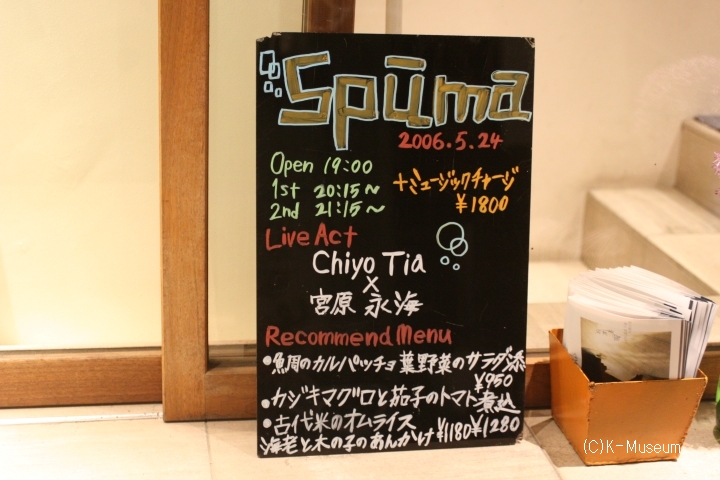 Spūma
2006.5.24
Open 19:00
1st 20:15~
2nd 21:15~
+ミュージックチャージ
¥1800
Live Act
Chiyo Tia
×
宮原 永海
Recommend Menu
•魚周のカルパッチョ 葉野菜のサラダ添
¥950
•カジキマグロと茄子のトマト煮込
¥1280
•古代米のオムライス
海老と木の子のあんかけ ¥1180
(C)K-Museum